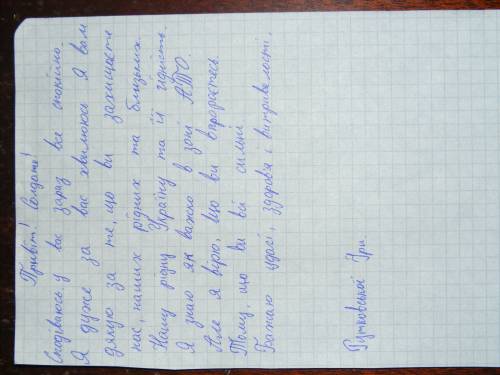 Привіт! Солдате!
Сподіваюсь у вас зараз все спокійно.
Я дуже за вас хвилююсь Я вам
дякую за те, що ви захищаєте
нас, наших рідних та близьких.
Нашу рідну Україну та її гідність.
Я знаю як важко в зоні АТО.
Але я вірю, що ви впораєтесь
Тому, що ви всі сильні
Бажаю удачі, здоров'я і витривалості.
Гутковської Іри.